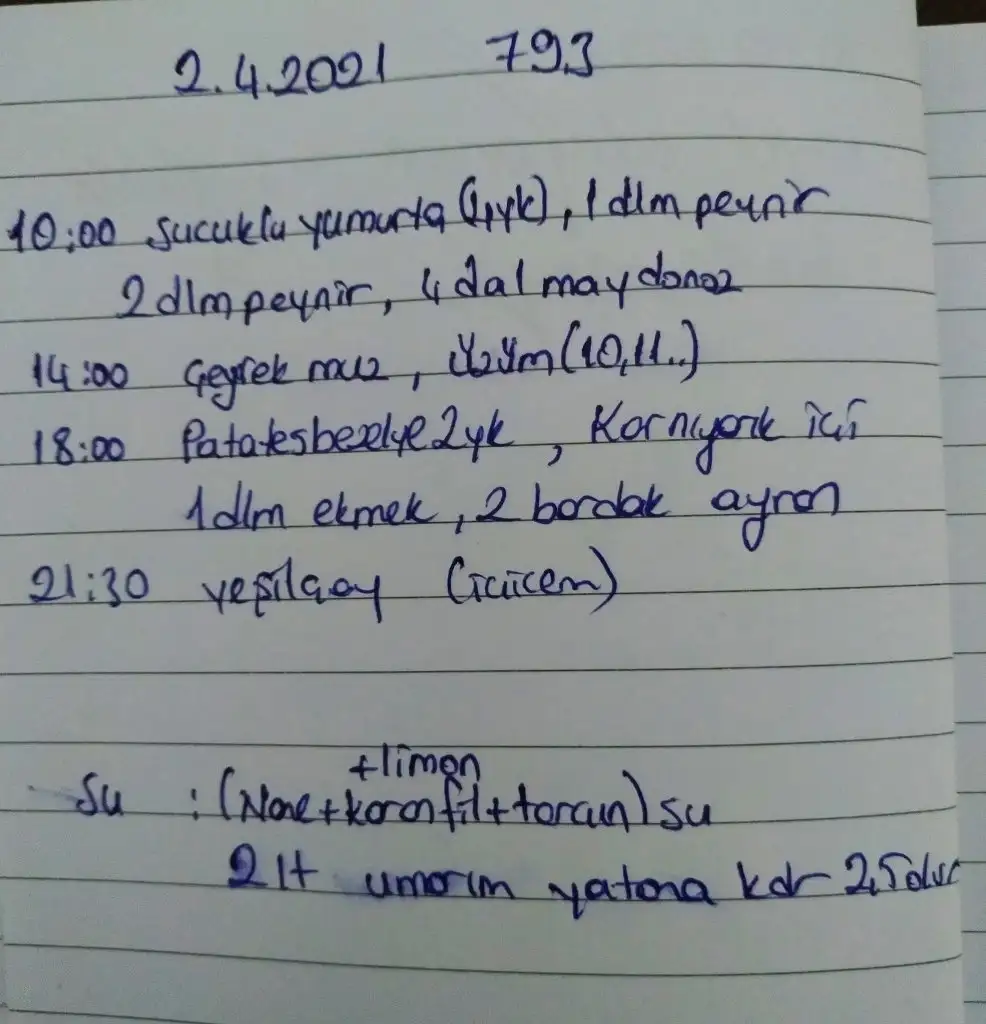 2.4.2021 79.3
10:00 sucuklu yumurta (1yk), 1 dlm peynir
2 dlm peynir, 4 dal maydanoz
14:00 Çeyrek muz, üzüm (10,11..)
18:00 Patates bezelye 2 yk, Karnıyarık içi
1 dlm ekmek, 2 bardak ayran
21:30 yeşilçay (içicem)
+limon
Su : (Nane + karanfil + tarçın) su
2 lt umarım yatana kdr 2,5 olur